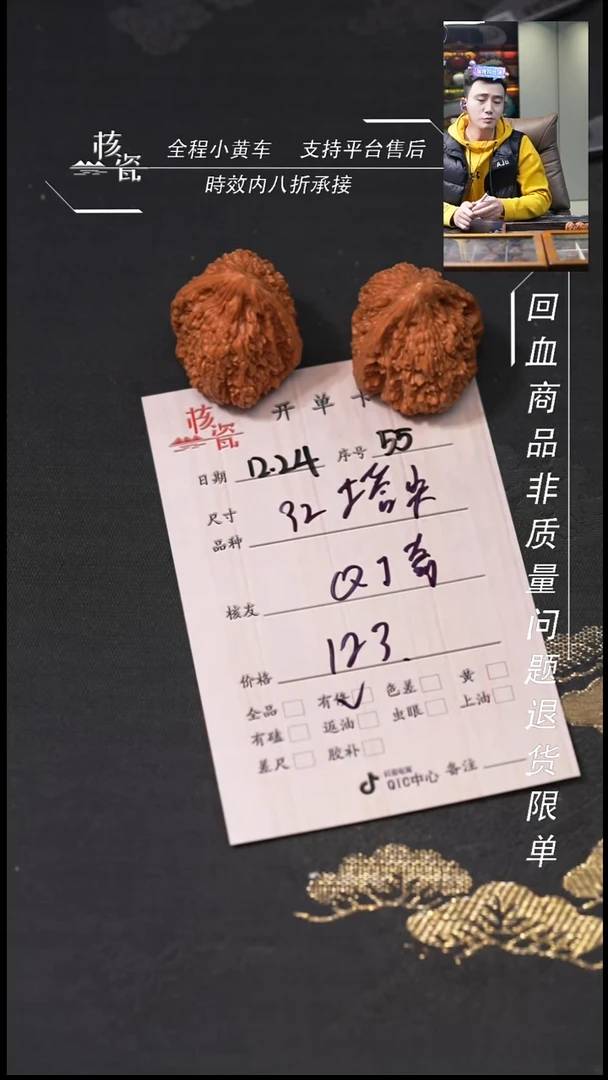 核瓷
全程小黄车 支持平台售后
時效内八折承接
AJU
回血商品非质量问题退货限单
核瓷
开单卡
日期 12.24 序号 55
尺寸 32 塔尖
品种
核友
价格 123.
全品 有修 色差 黄
有磕 返油 虫眼 上油
差尺 胶补
QIC中心 备注